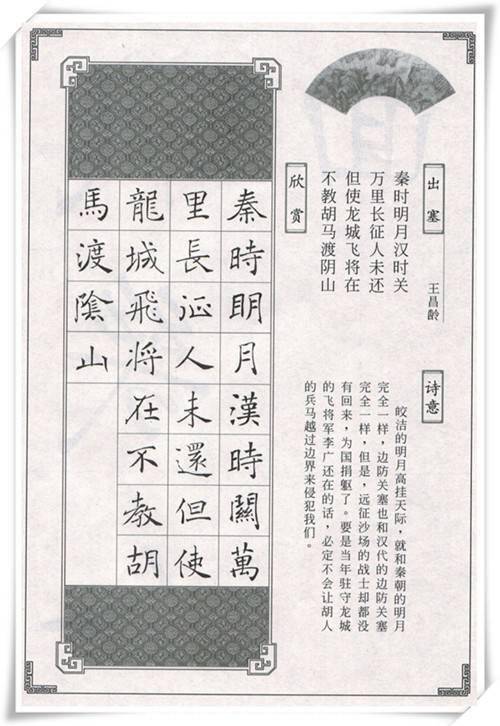 出塞
王昌龄
秦时明月汉时关
万里长征人未还
但使龙城飞将在
不教胡马渡阴山
诗意
皎洁的明月高挂天际，就和秦朝的明月
完全一样，边防关塞也和汉代的边防关塞
完全一样，但是，远征沙场的战士却都没
有回来，为国捐躯了。要是当年驻守龙城
的飞将军李广还在的话，必定不会让胡人
的兵马越过边界来侵犯我们。
欣赏
秦時明月漢時關萬
里長征人未還但使
龍城飛將在不教胡
馬渡陰山